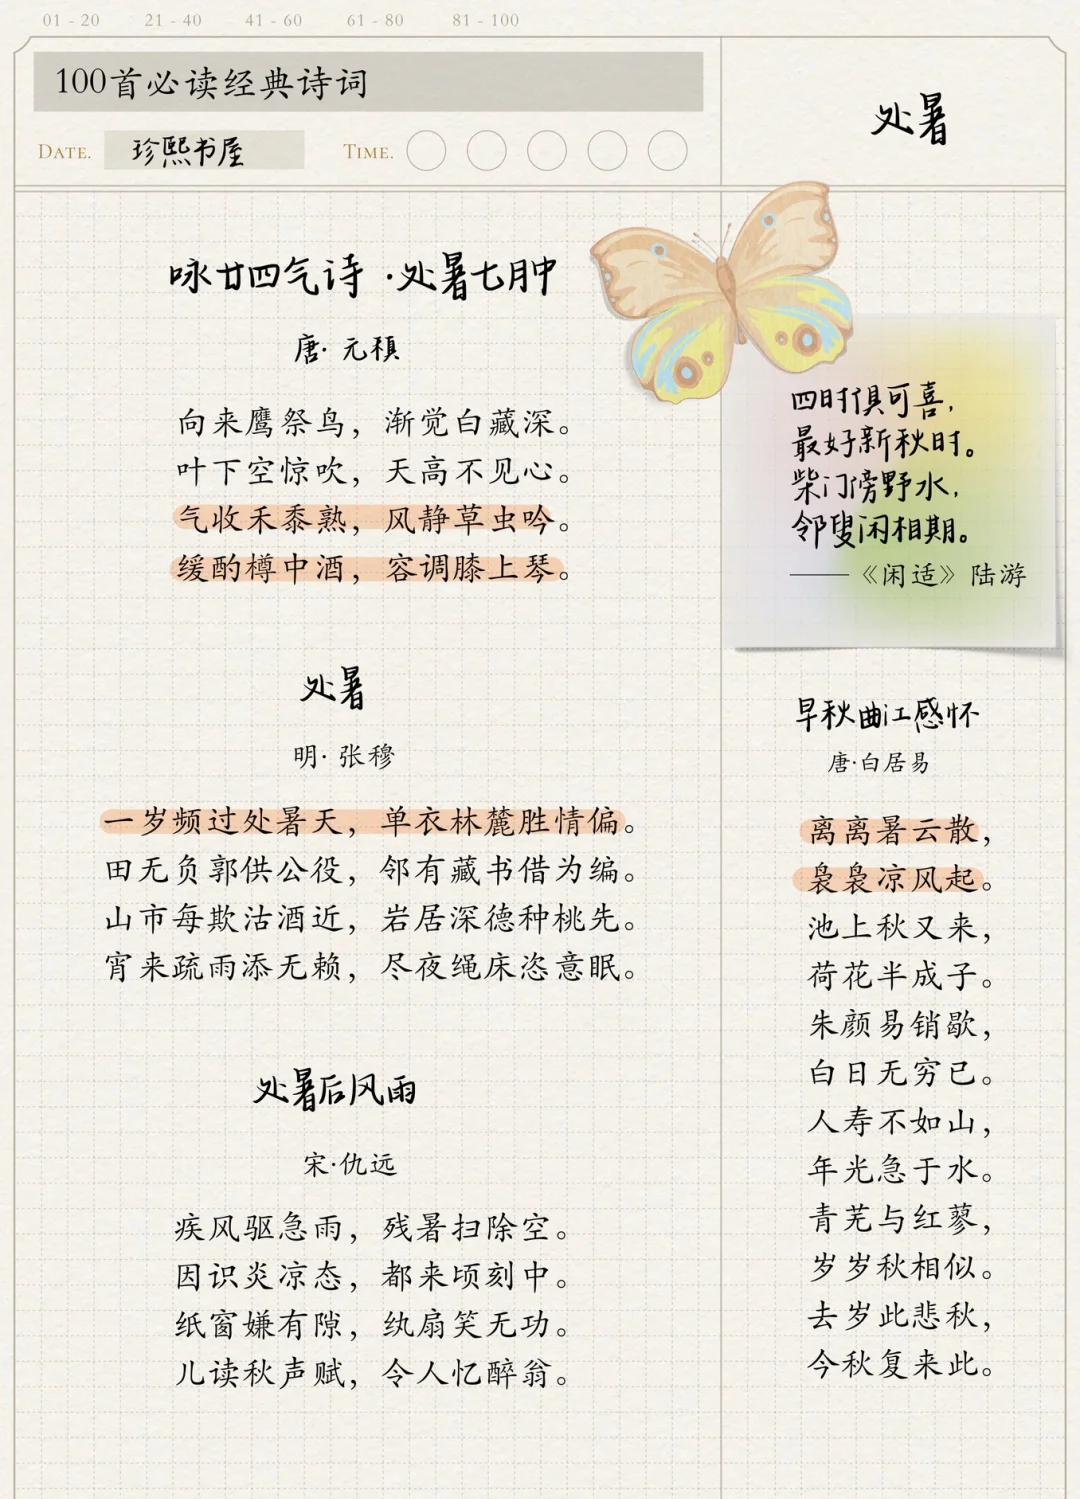 01 - 20 21 - 40 41 - 60 61 - 80 81 - 100
100首必读经典诗词
DATE. 珍熙书屋 TIME.
处暑
咏廿四气诗·处暑七月中
唐·元稹
向来鹰祭鸟，渐觉白藏深。
叶下空惊吹，天高不见心。
气收禾黍熟，风静草虫吟。
缓酌樽中酒，容调膝上琴。
处暑
明·张穆
一岁频过处暑天，单衣林麓胜情偏。
田无负郭供公役，邻有藏书借为编。
山市每欺沽酒近，岩居深德种桃先。
宵来疏雨添无赖，尽夜绳床恣意眠。
处暑后风雨
宋·仇远
疾风驱急雨，残暑扫除空。
因识炎凉态，都来顷刻中。
纸窗嫌有隙，纨扇笑无功。
儿读秋声赋，令人忆醉翁。
四时俱可喜，
最好新秋时。
柴门傍野水，
邻叟闲相期。
——《闲适》陆游
早秋曲江感怀
唐·白居易
离离暑云散，
袅袅凉风起。
池上秋又来，
荷花半成子。
朱颜易销歇，
白日无穷已。
人寿不如山，
年光急于水。
青芜与红蓼，
岁岁秋相似。
去岁此悲秋，
今秋复来此。